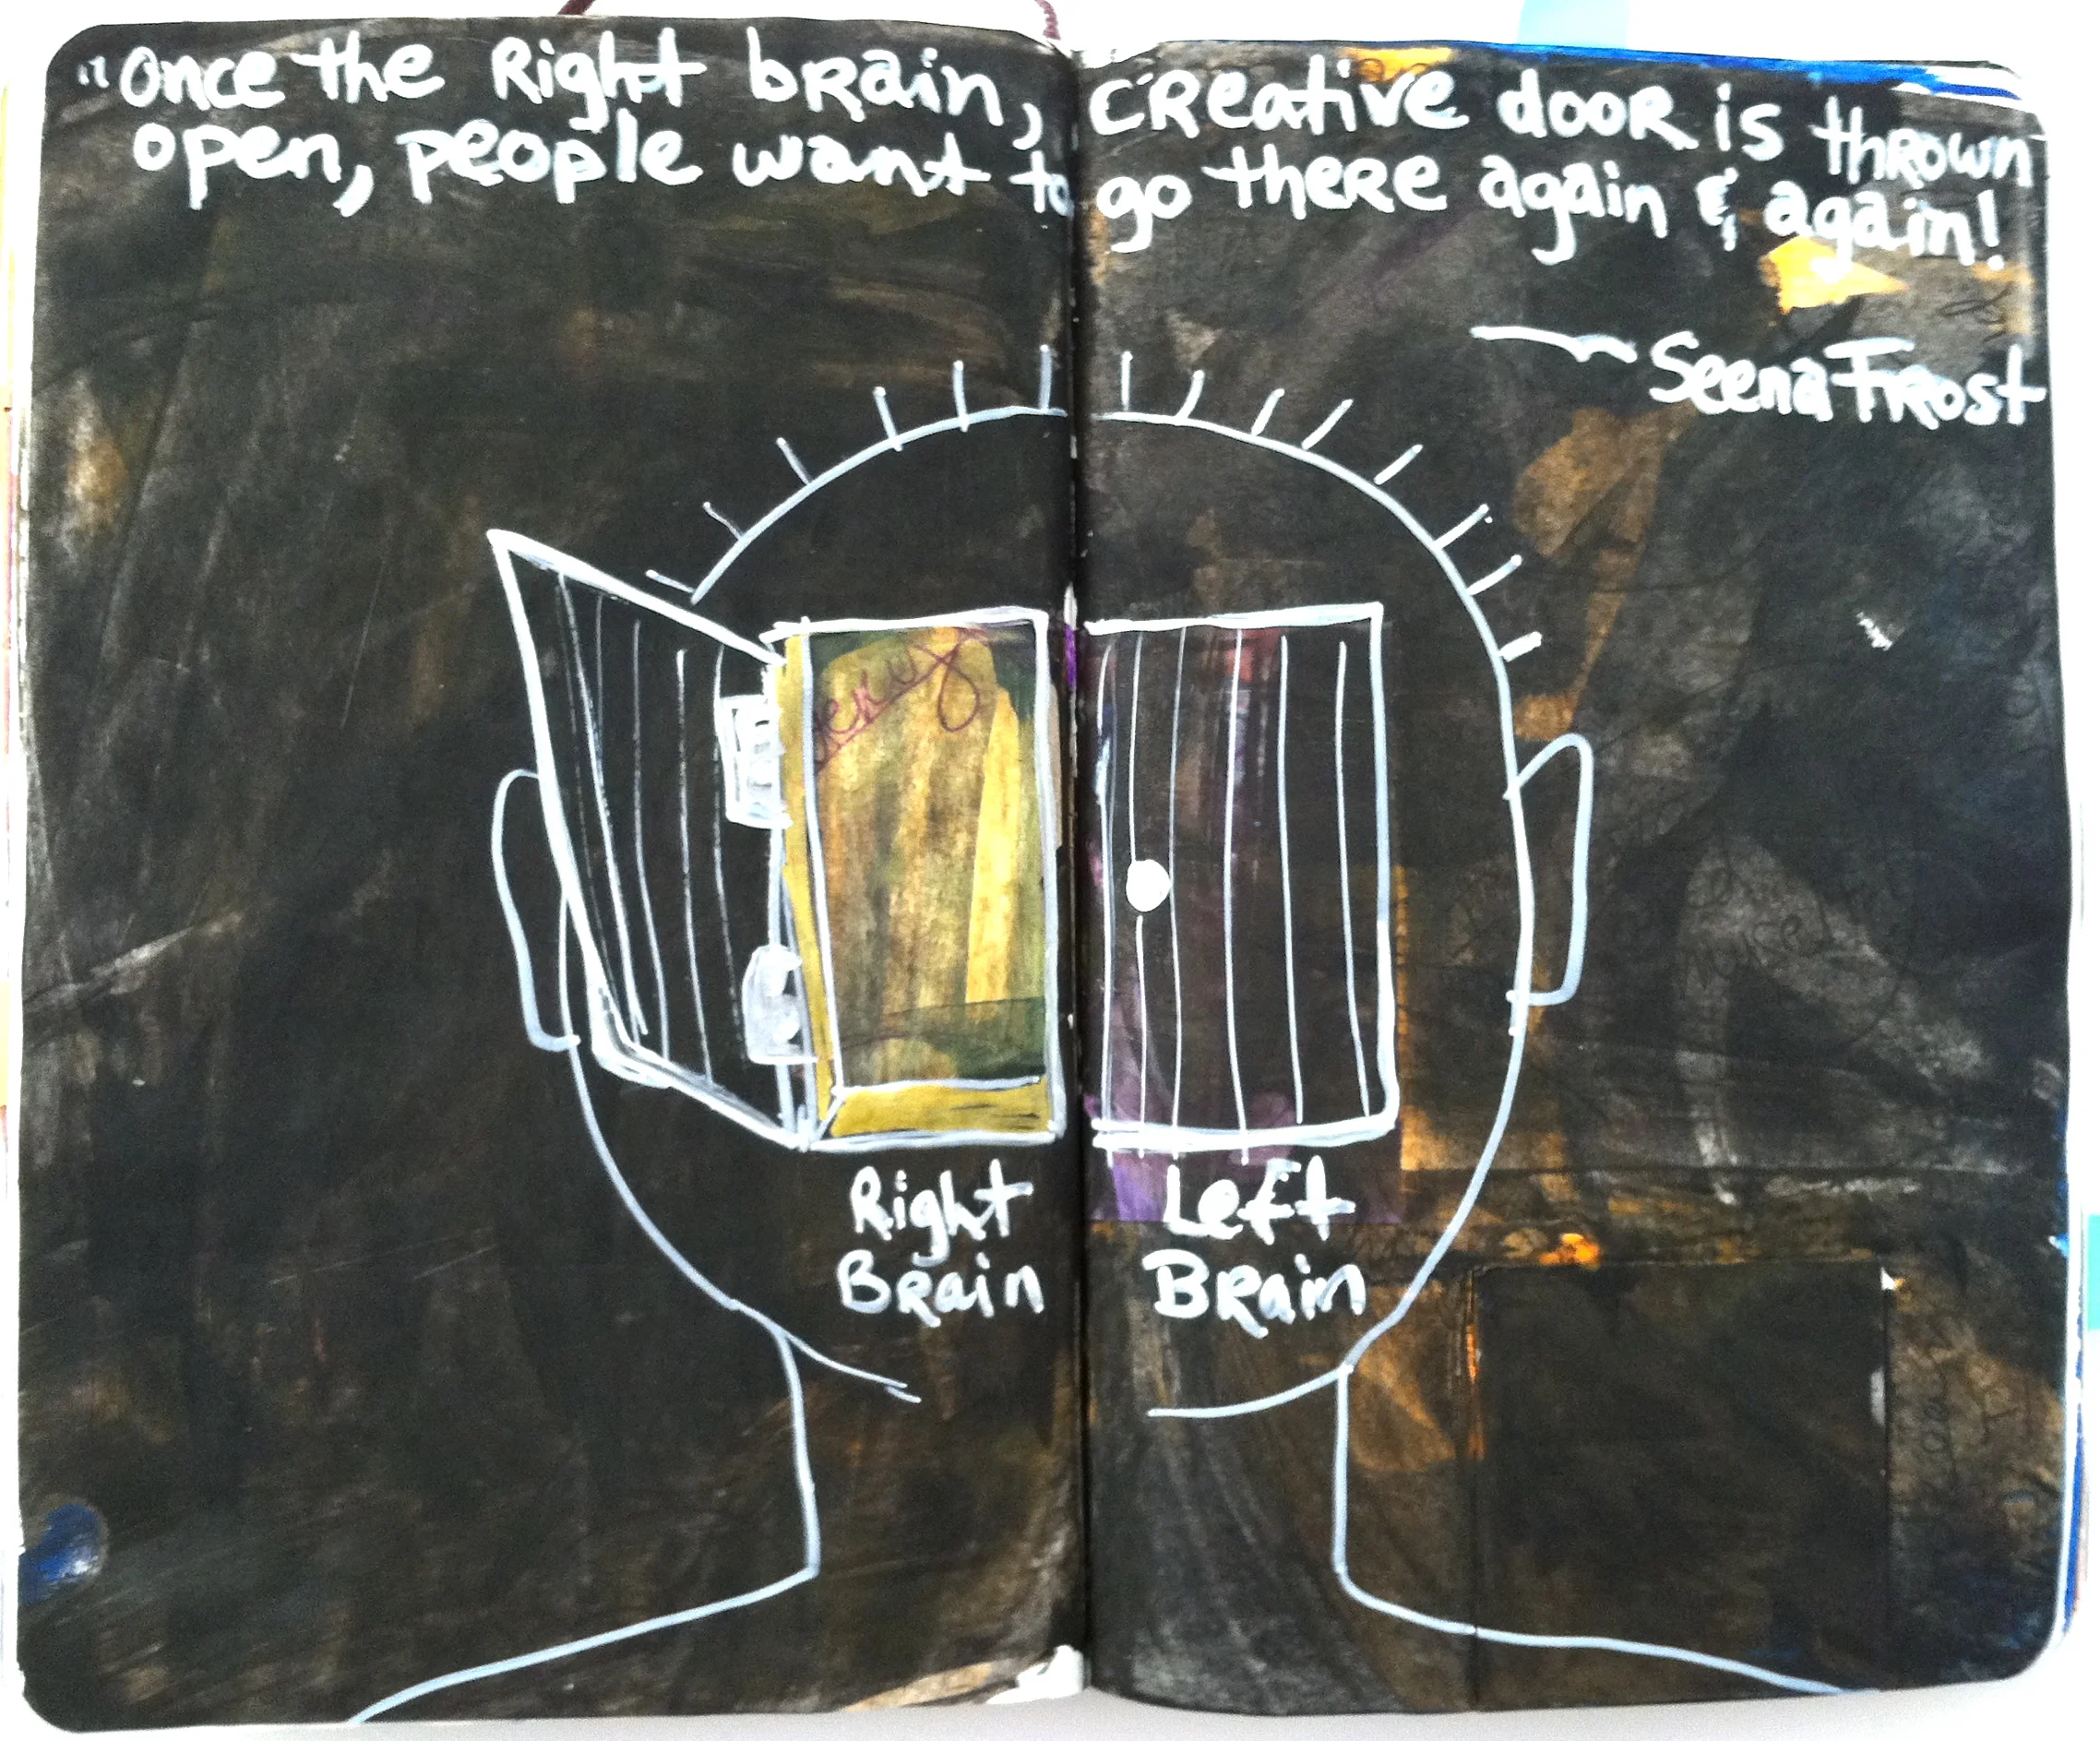 "Once the Right brain, creative door is thrown
open, people want to go there again & again!
— Seena Frost
Right
Brain
Left
Brain